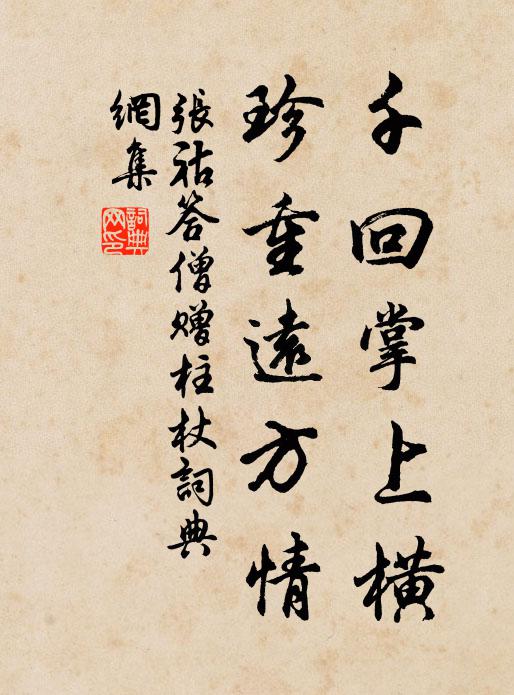 千回掌上横
珍重遠方情
張祜答僧贈柱杖詞典
網集
詞典
网印